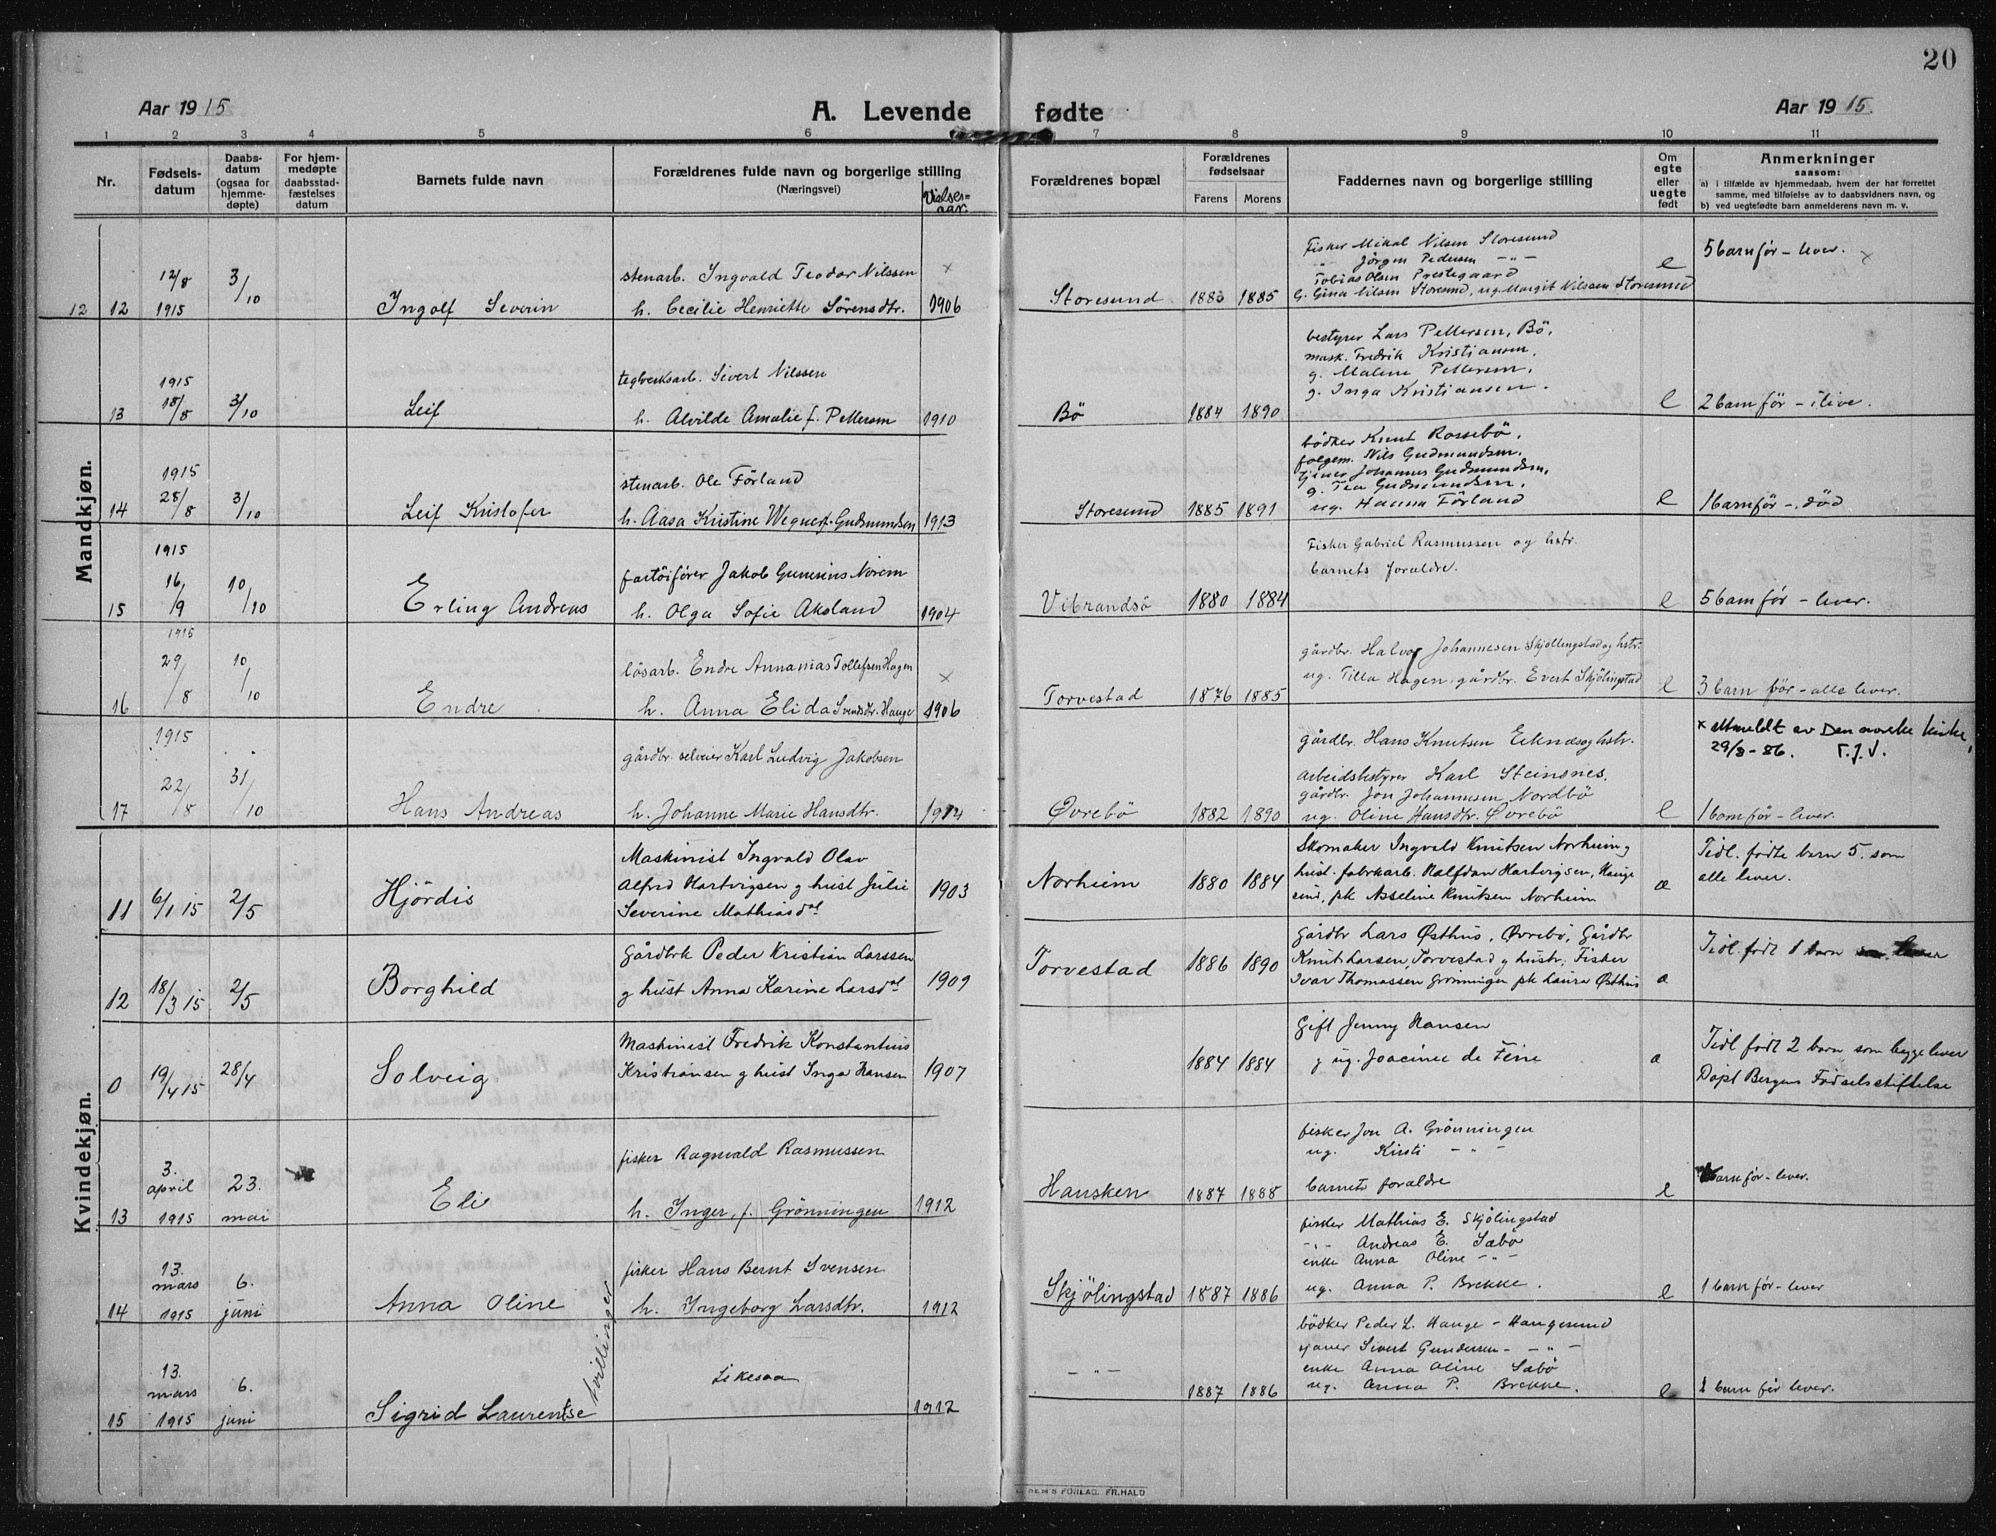 20
Aar 1915
A. Levende fødte
Aar 1915.
1 2 3 4 5 6 7 8 9 10 11
Nr.
Fødsels-
datum
Daabs-
datum
(ogsaa for
hjemme-
døpte)
For hjem-
medøpte
daabsstad-
fæstelses
datum
Barnets fulde navn
Forældrenes fulde navn og borgerlige stilling
(Næringsvei)
Vielses-
aar.
Forældrenes bopæl
Forældrenes
fødselsaar
Farens Morens
Faddernes navn og borgerlige stilling
Om
egte
eller
uegte
født
Anmerkninger
saasom:
a) i tilfælde av hjemmedaab, hvem der har forrettet
samme, med tilføielse av to daabsvidners navn, og
b) ved uegtefødte barn anmelderens navn m. v.
Mandkjøn.
12 12 12/8 1915 3/10 Ingolf Severin
stenarb. Ingvald Teodor Nilssen ×
h. Cecilie Henriette Sörensdtr. 1906
Storesund 1883 1885
Fisker Mikal Nilsen Storesund
" Jörgen Pedersen -"-
Tobias Olsen Prestegaard
G. Gina Nilsen Storesund, ug. Margit Nilssen Storesund
e 5 barn før - lever. ×
13 1915 18/8 3/10 Leif
teglverksarb. Sivert Nilssen
h. Alvilde Amalie f. Pettersen 1910
Bö 1884 1890
bestyrer Lars Pettersen, Bö,
mask. Fredrik Kristiansen,
g. Malene Pettersen,
g. Inga Kristiansen.
e 2 barn før - ilive.
14 1915 28/8 3/10 Leif Kristofer
stenarb. Ole Förland
h. Aasa Kristine Wegner f. Gudmundsen 1913
Storesund 1885 1891
bödker Knut Rossebö,
folgem. Nils Gudmundsen,
tjener Johannes Gudmundsen,
g. Tea Gudmundsen,
ug. Hanna Förland
e 1 barn før - död
15 1915 16/9 10/10 Erling Andreas
fartöifører Jakob Gunerius Norem
h. Olga Sofie Aksland 1904
Vibrandsö 1880 1884
Fisker Gabriel Rasmussen og hstr.
barnets foraldre.
e 5 barn før - lever.
16 1915 29/8 10/10 Endre
lösarb. Endre Annanias Tollefsen Hagen ×
h. Anna Elida Svendsdtr. Hauge 1906
Torvestad 1876 1885
gårdbr. Halvor Johannesen Skjöllingstad og hstr.
ug. Tilla Hagen, gårdbr. Evert Skjölingstad
e 3 barn før - alle lever.
17 1915 22/8 31/10 Hans Andreas
gårdbr. selveier Karl Ludvig Jakobsen
h. Johanne Marie Hansdtr. 1914
Øvrebö 1882 1890
gårdbr. Hans Knutsen Eiknes og hstr.
arbeidsbestyrer Karl Steinsnes,
gårdbr. Jon Johannesen Nordbö
ug. Oline Hansdtr. Øvrebö
e 1 barn før - lever.
× utmeldt av Den norske kirke,
29/8-86. T.J.V.
Kvindekjøn.
11 6/1 15 2/5 Hjördis
Maskinist Ingvald Olav
Alfred Hartvigsen g hust Julie
Severine Mathiasdat 1903
Norheim 1880 1884
Skomaker Ingvald Knutsen Norheim g
hust. fabrkarb. Halfdan Hartvigsen, Hauge
sund, pk Asseline Knutsen Norheim
æ Tidl. födte barn 5. som
alle lever.
12 18/3 15 2/5 Borghild
Gårdbrk Peder Kristian Larssen
g hust Anna Karine Larsdat 1909
Torvestad 1886 1890
Gårdbr Lars Østhus, Øvrebö, Gårdbr
Knut Larsen, Torvestad g hustr; Fisker
Ivar Thomassen Grönningen pk Laura Østhus
æ Tidl. födt 1 barn
0 19/4 15 28/4 Solveig
Maskinist Fredrik Konstantius
Kristiansen g hust Inga Hansen 1907
1884 1884
Gift Jenny Hansen
g ug. Joacinee de Feine
æ Tidl födt 2 barn som begge lever
Döpt Bergens Födselsstiftelse
13 3. april 1915 23. mai Eli
fisker Ragnvald Rasmussen
h. Inger, f. Grönningen 1912
Hansken 1887 1888
fisker Jon A. Grönningen
ug. Kirsti - " -
barnets foraldre
e barn før - lever.
14 13. mars 1915 6. juni Anna Oline
fisker Hans Bernt Svensen
h. Ingeborg Larsdtr. 1912
Skjölingstad 1887 1886
fisker Mathias E. Skjölingstad
-"- Andreas E. Sæbö
enke Anna Oline -"-
ug. Anna P. Brekke.
e 1 barn før - lever
tvillinger
15 13. mars 1915 6. juni Sigrid Laurentse
Likesaa 1912
-"- 1887 1886
bödker Peder L. Hauge - Haugesund
sjauer Sivert Gundersen - -"-
enke Anna Oline Sæbö
ug. Anna P. Brekke.
e 1 barn før lever.
FORLAG. FR. HALD